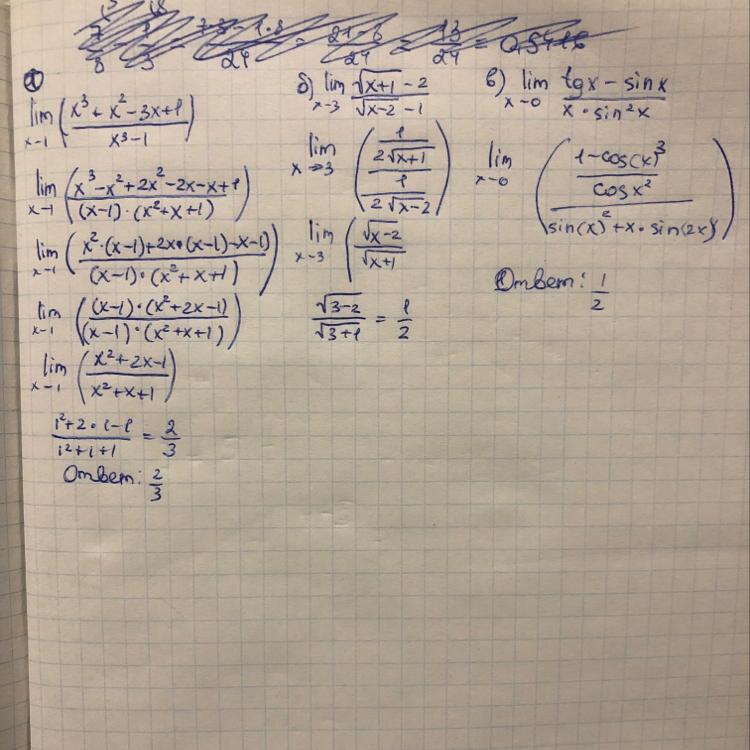 а)
lim x→1 ((x³ + x² - 3x + 1)/(x³ - 1))
lim x→1 ((x³ - x² + 2x² - 2x - x + 1)/((x-1)·(x²+x+1)))
lim x→1 ((x²·(x-1)+2x·(x-1)-x-1)/((x-1)·(x²+x+1)))
lim x→1 (((x-1)·(x²+2x-1))/((x-1)·(x²+x+1)))
lim x→1 ((x²+2x-1)/(x²+x+1))
(1²+2·1-1)/(1²+1+1) = 2/3
Ответ: 2/3
б) lim x→3 (√(x+1) - 2)/(√(x-2) - 1)
lim x→3 ((1/(2√(x+1)))/(1/(2√(x-2))))
lim x→3 (√(x-2)/√(x+1)
√(3-2)/√(3+1) = 1/2
в) lim x→0 (tgx - sinx)/(x·sin²x)
lim x→0 (((1-cos(x)³)/(cosx²))/(sin(x)²+x·sin(2x)))
Ответ: 1/2